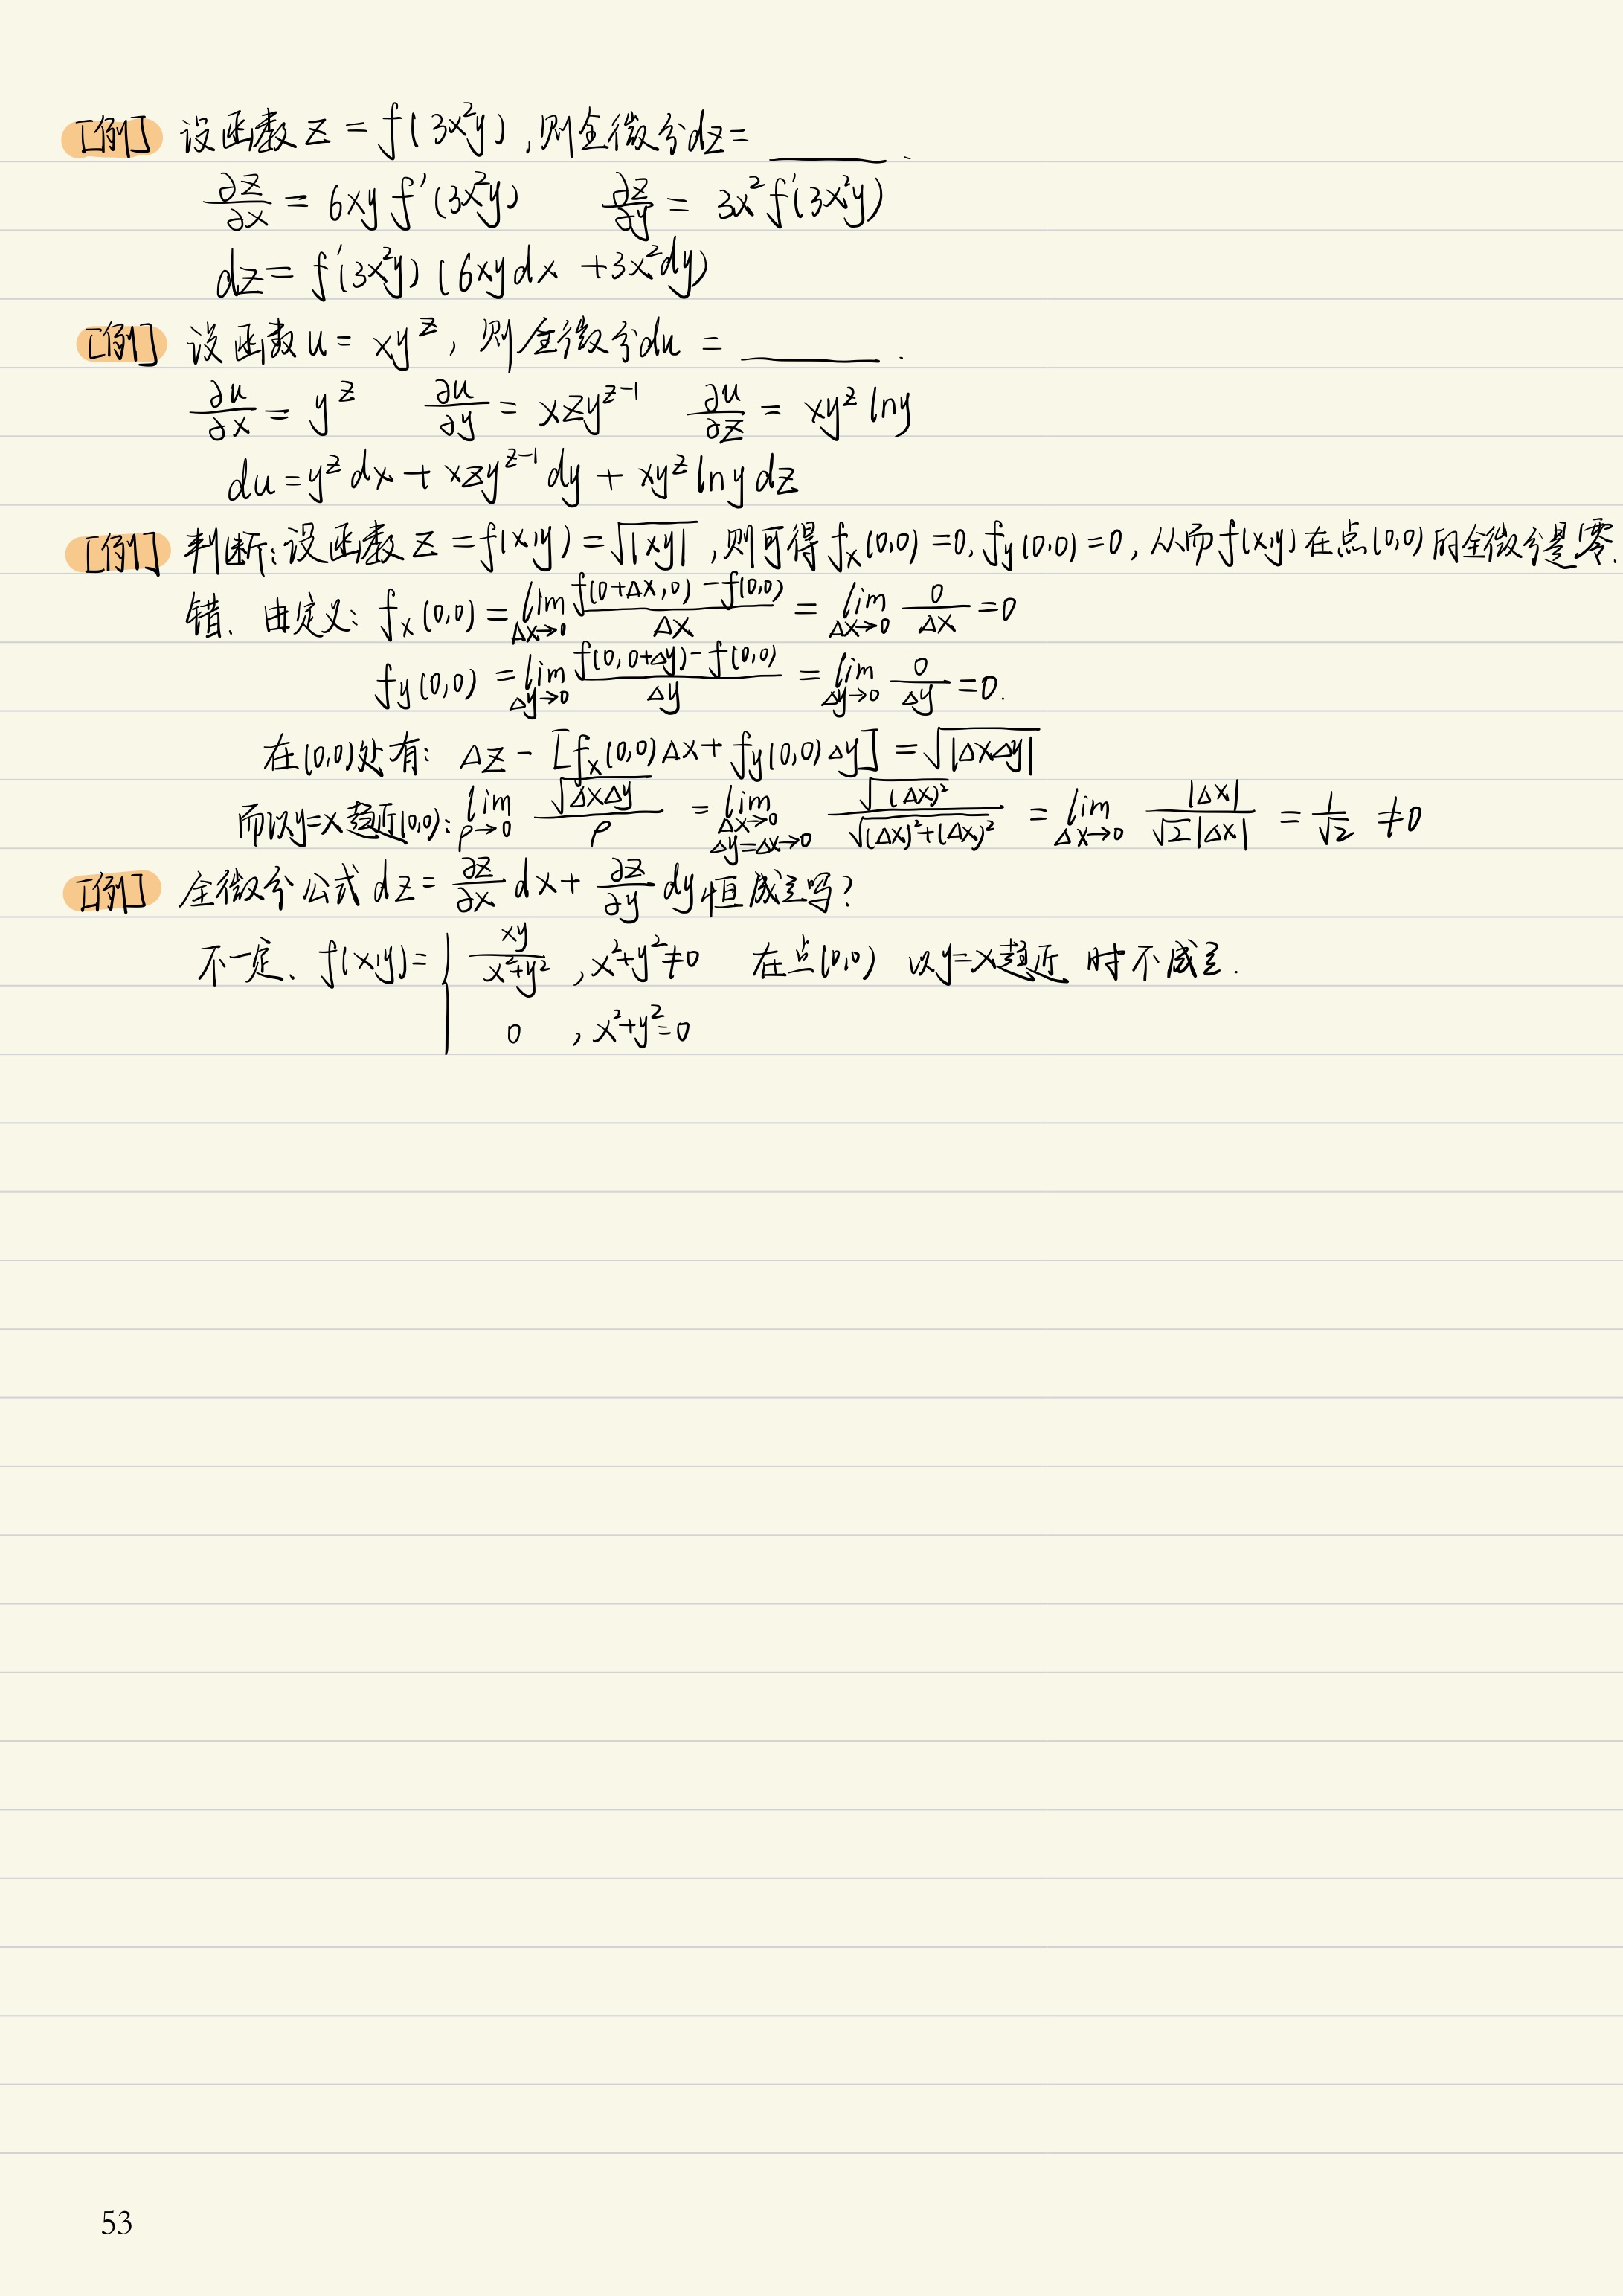 [例] 设函数 z = f(3x²y), 则全微分dz= ______ .
∂z/∂x = 6xy f′(3x²y)  ∂z/∂y = 3x² f′(3x²y)
dz = f′(3x²y) (6xydx + 3x²dy)
[例] 设函数 u = xy^z, 则全微分du = ______ .
∂u/∂x = y^z  ∂u/∂y = xzy^(z-1)  ∂u/∂z = xy^z lny
du = y^z dx + xzy^(z-1) dy + xy^z lny dz
[例] 判断: 设函数 z = f(x,y) = √|xy| , 则可得 fx(0,0) = 0, fy(0,0) = 0, 从而f(x,y) 在点(0,0) 的全微分是零.
错. 由定义: fx(0,0) = lim(Δx→0) (f(0+Δx,0) - f(0,0))/Δx = lim(Δx→0) 0/Δx = 0
fy(0,0) = lim(Δy→0) (f(0,0+Δy) - f(0,0))/Δy = lim(Δy→0) 0/Δy = 0.
在(0,0)处有: Δz - [fx(0,0)Δx + fy(0,0)Δy] = √|ΔxΔy|
而以y=x趋近(0,0): lim(ρ→0) √(ΔxΔy)/ρ = lim(Δx→0 Δy=Δx→0) √((Δx)²)/√((Δx)²+(Δx)²) = lim(Δx→0) |Δx|/(√2|Δx|) = 1/√2 ≠ 0
[例] 全微分公式 dz = ∂z/∂x dx + ∂z/∂y dy 恒成立吗?
不一定. f(x,y) = { xy/(x²+y²) , x²+y²≠0  在点(0,0) 以y=x趋近 时不成立.
0 , x²+y²=0
53